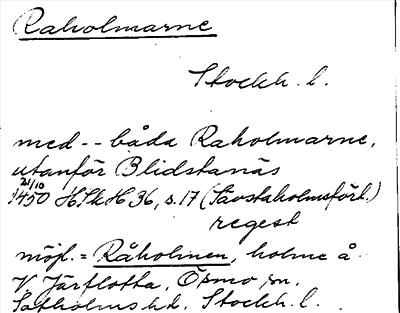 Raholmarne
Stockh. l.
med -- båda Raholmarne,
utanför Blidstanäs
21/10
1450 HSkH 36, s. 17 (Sävstaholmsförl.)
regest
möjl. = Råholmen, holme å
V. Järflotta, Ösmo sn,
Sotholms hd, Stockh. l.